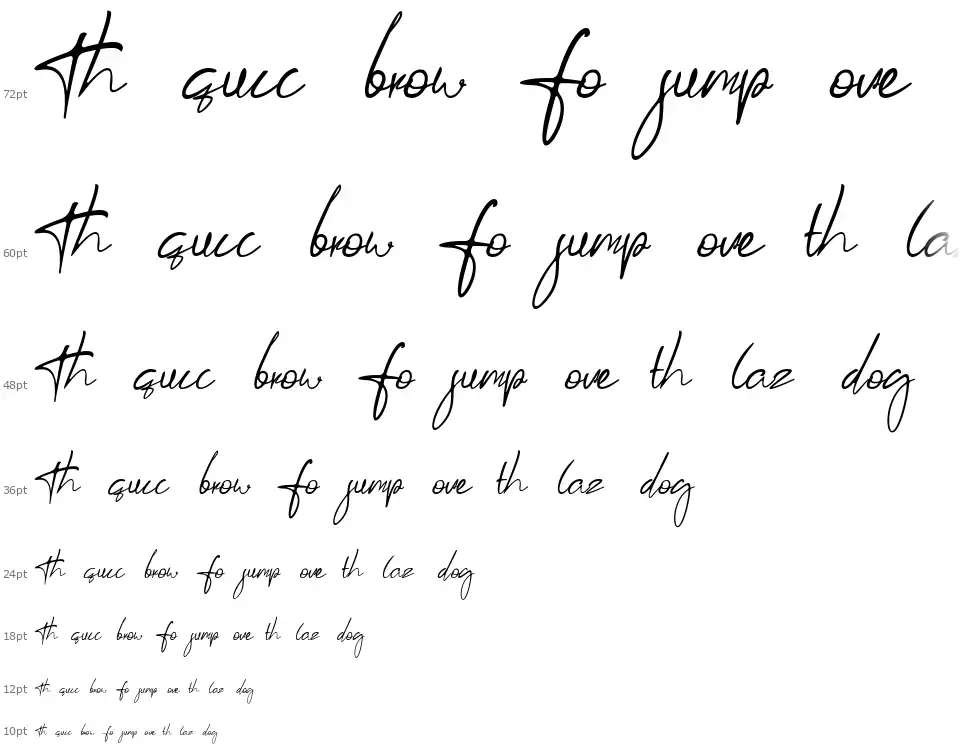 72pt Th qucc brow fo jump ove
60pt Th qucc brow fo jump ove th la
48pt Th qucc brow fo jump ove th laz dog
36pt Th qucc brow fo jump ove th laz dog
24pt Th qucc brow fo jump ove th laz dog
18pt Th qucc brow fo jump ove th laz dog
12pt Th qucc brow fo jump ove th laz dog
10pt Th qucc brow fo jump ove th laz dog